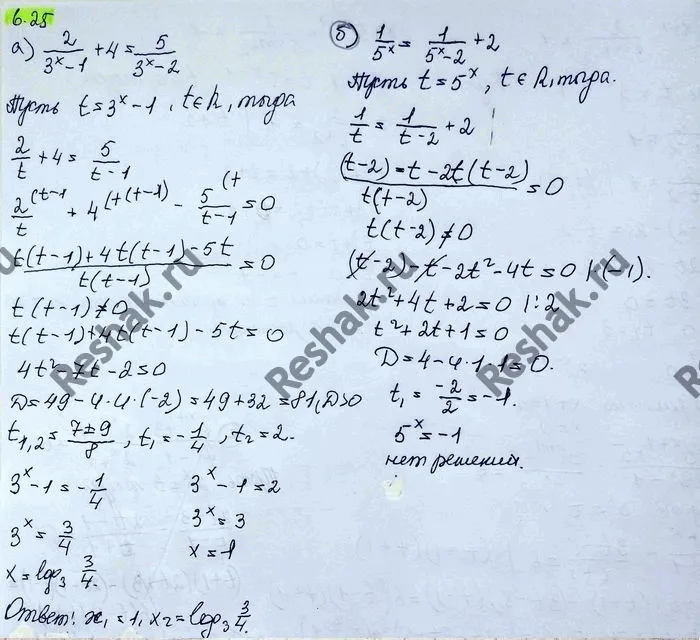 6.25
а) 2/(3^x-1) + 4 = 5/(3^x-2)
Пусть t = 3^x-1, t∈R, тогда
2/t + 4 = 5/(t-1)
2/t^(t-1 + 4^(t(t-1) - 5/(t-1)^(t = 0
(t(t-1)+4t(t-1)-5t)/(t(t-1)) = 0
t(t-1)≠0
t(t-1)+4t(t-1)-5t=0
4t²-7t-2=0
D=49-4·4·(-2)=49+32=81, D>0
t₁,₂ = (7±9)/8, t₁=-1/4, t₂=2.
3^x-1=-1/4    3^x-1=2
3^x=3/4    3^x=3
x=log₃ 3/4.    x=1
Ответ: x₁=1, x₂=log₃ 3/4.
б) 1/5^x = 1/(5^x-2) + 2
Пусть t=5^x, t∈R, тогда.
1/t = 1/(t-2) + 2
((t-2)=t-2t(t-2))/(t(t-2)) = 0
t(t-2)≠0
(t-2)-t-2t²-4t=0 |·(-1).
2t²+4t+2=0 |:2
t²+2t+1=0
D=4-4·1·1=0.
t₁=-2/2=-1.
5^x=-1
нет решений.
Reshak.ru
Reshak.ru
Reshak.ru